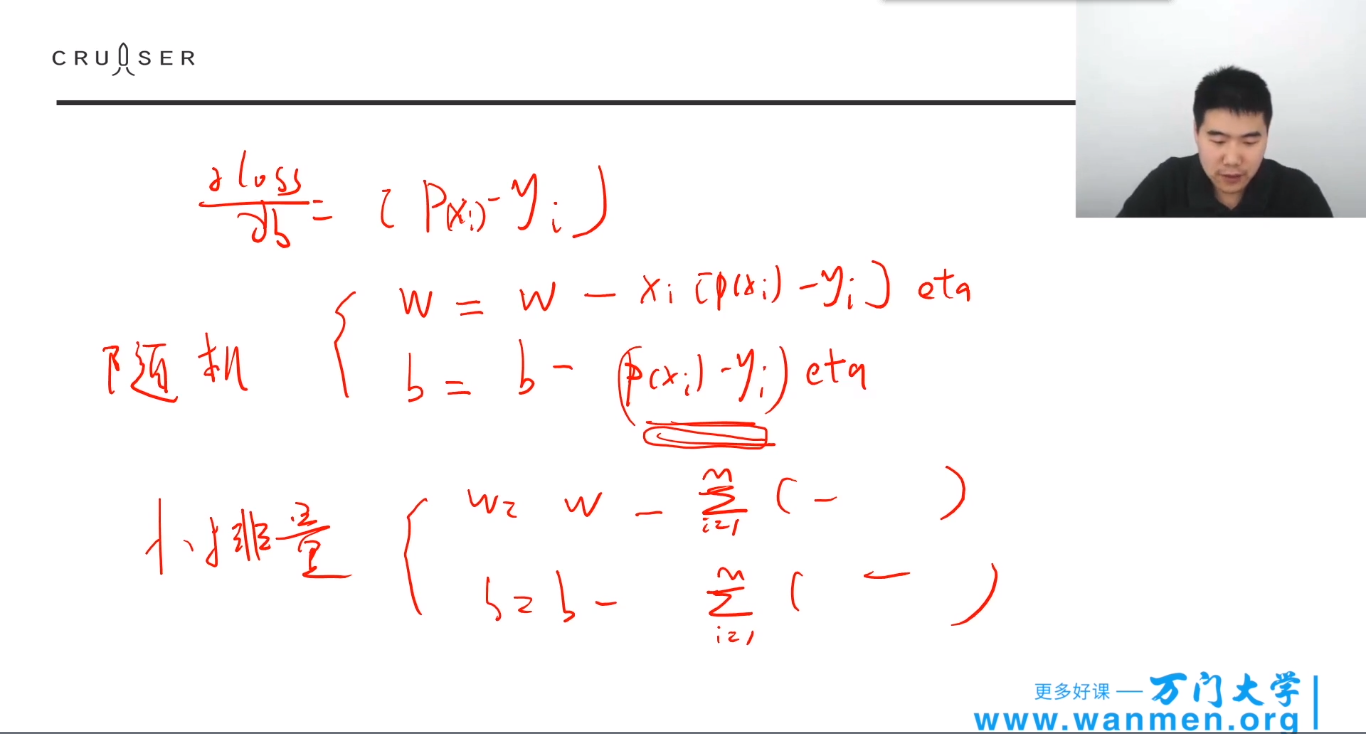 CRUISER
∂loss/∂b = (P(xi) - yi)
w = w - xi [p(xi) - yi] eta
随机
b = b - (p(xi) - yi) eta
w = w - Σ i=1 m ( - )
小排量
b = b - Σ i=1 m ( - )
更多好课 — 万门大学
www.wanmen.org